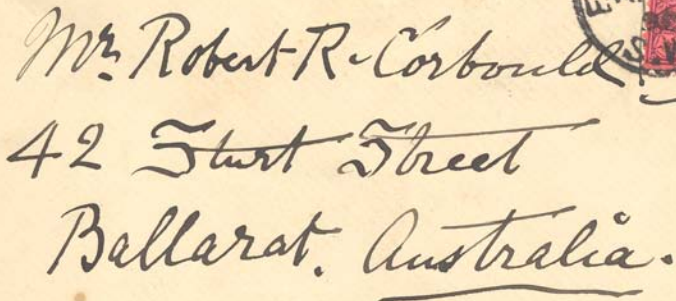 Mr. Robert R. Corbould
42 Sturt Street
Ballarat, Australia.